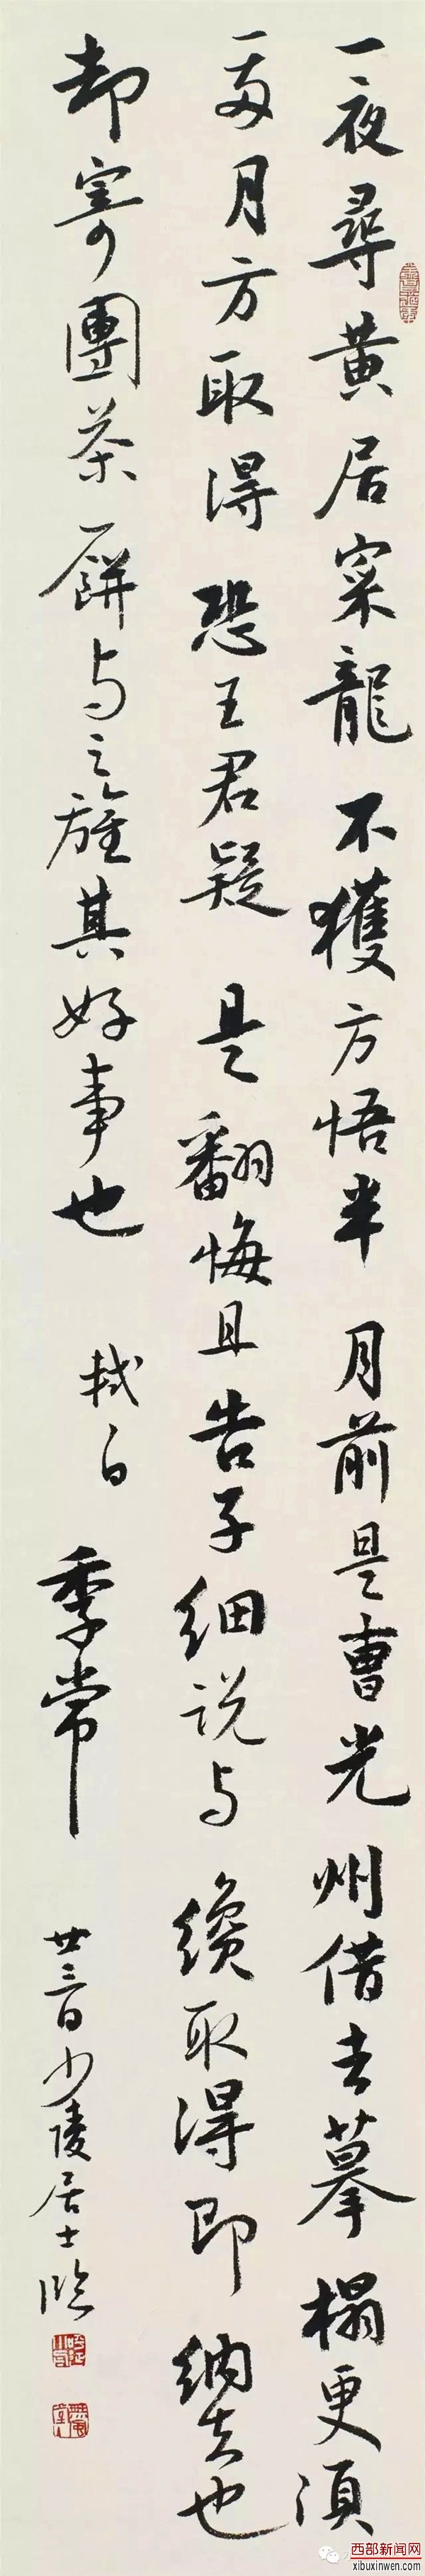 一夜尋黄居寀龍不獲方悟半月前是曹光州借去摹榻更須
一兩月方取得恐王君疑是翻悔且告子細說与纔取得即納去也
却寄團茶一餅与之旌其好事也 軾白 季常 廿三日少陵居士臨
西部新闻网
xibuxinwen.com